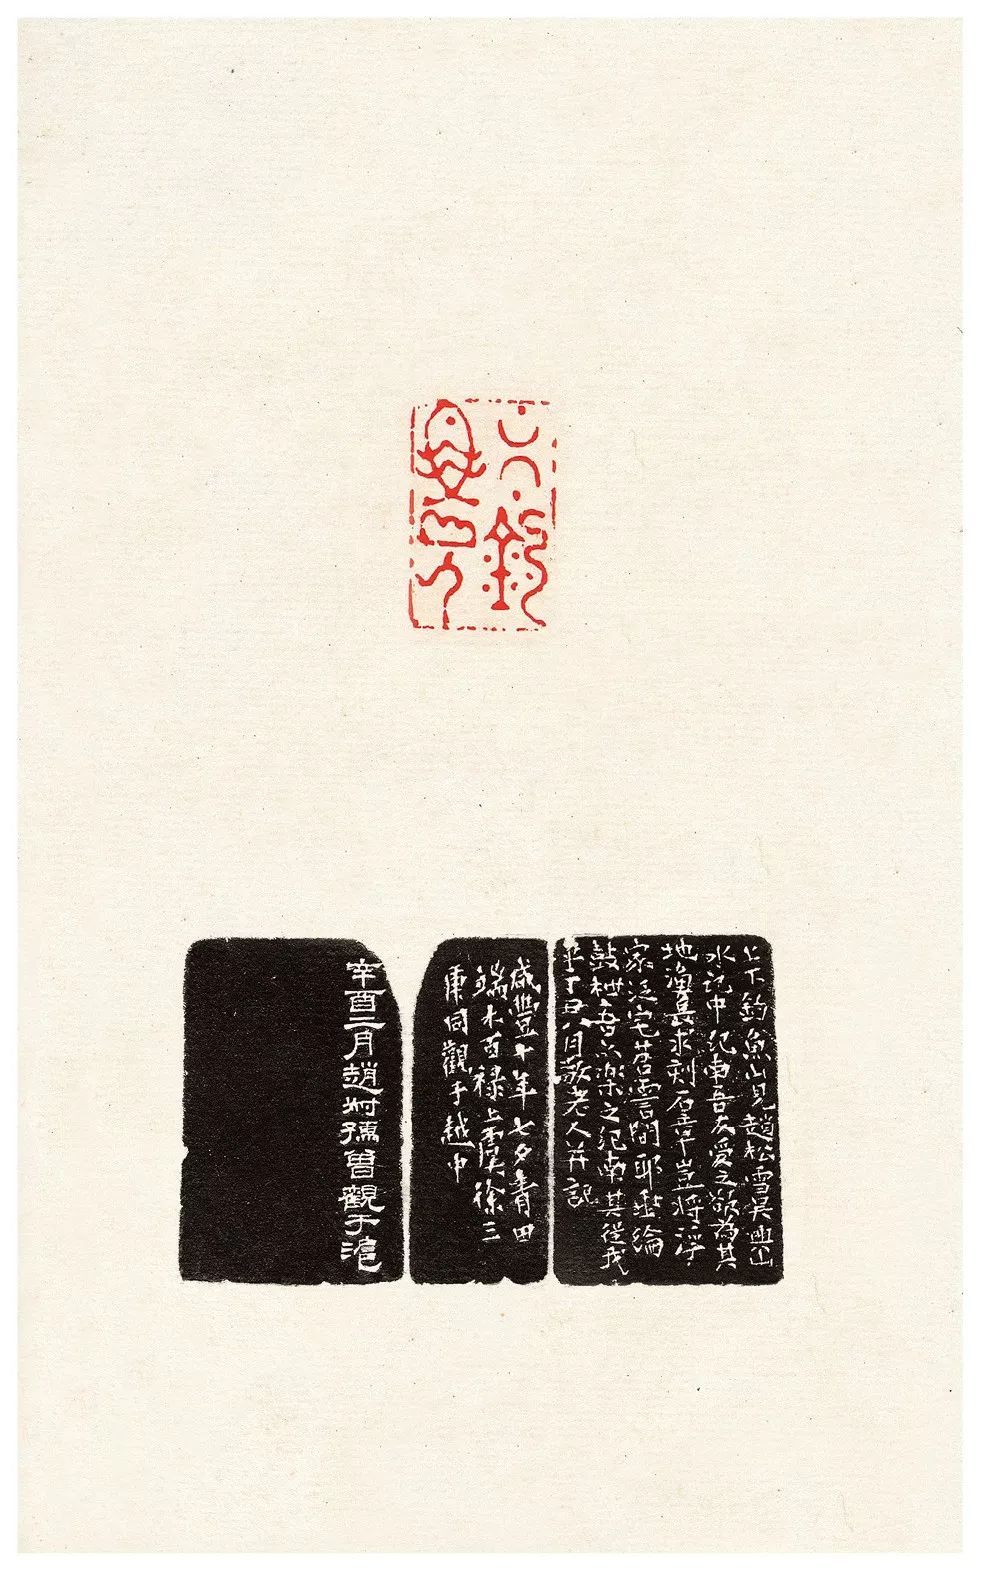 上下釣魚山人
上下釣魚山見趙松雪吳興山
水記中紀南吾友愛之欲為其
地漁長求刻石章豈將浮
家泛宅苕霅間耶垂綸
鼓枻吾亦樂之紀南其從我
乎丁丑八月敬老人并記
咸豐十年七夕青田
端木百祿上虞徐三
庚同觀于越中
辛酉二月趙尗孺曾觀于滬